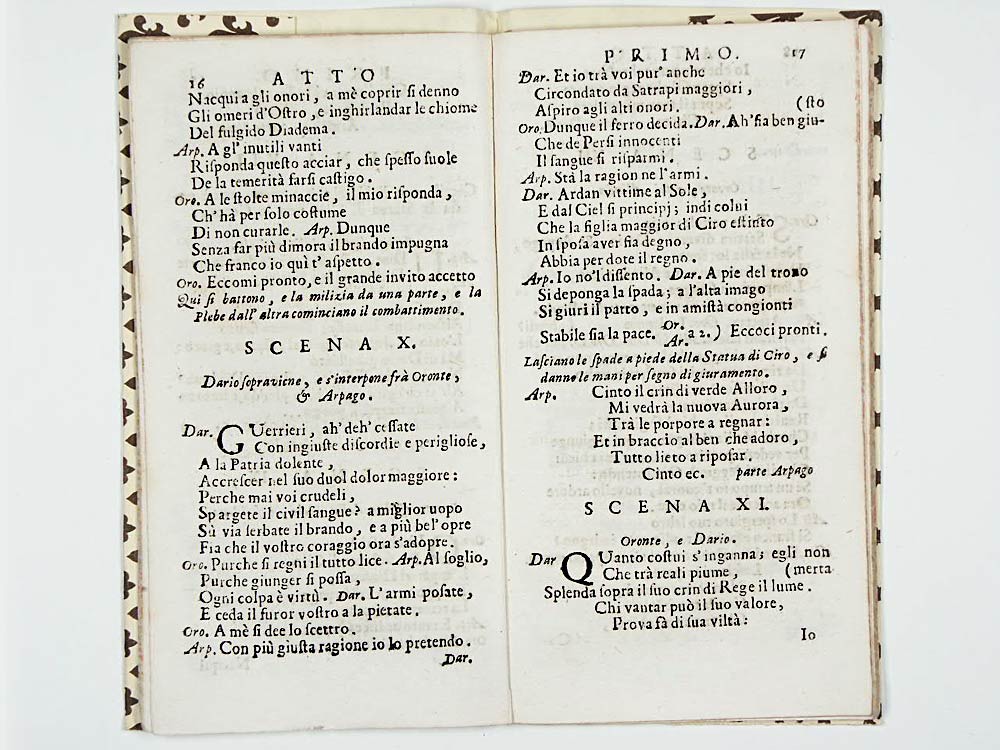 16 ATTO
Nacqui a gli onori, a mè coprir si denno
Gli omeri d'Ostro, e inghirlandar le chiome
Del fulgido Diadema.
Arp. A gl'inutili vanti
Risponda questo acciar, che spesso suole
De la temerità farsi castigo.
Oro. A le stolte minaccie, il mio risponda,
Ch'hà per solo costume
Di non curarle. Arp. Dunque
Senza far più dimora il brando impugna
Che franco io quì t'aspetto.
Oro. Eccomi pronto, e il grande invito accetto
Qui si battono, e la milizia da una parte, e la
Plebe dall'altra cominciano il combattimento.
SCENA X.
Dario sopraviene, e s'interpone frà Oronte,
& Arpago.
Dar. GUerrieri, ah' deh' cessate
Con ingiuste discordie e perigliose,
A la Patria dolente,
Accrescer nel suo duol dolor maggiore:
Perche mai voi crudeli,
Spargete il civil sangue? a miglior uopo
Sù via serbate il brando, e a più bel'opre
Fia che il vostro coraggio ora s'adopre.
Oro. Purche si regni il tutto lice. Arp. Al soglio,
Purche giunger si possa,
Ogni colpa è virtù. Dar. L'armi posate,
E ceda il furor vostro a la pietate.
Oro. A mè si dee lo scettro.
Arp. Con più giusta ragione io lo pretendo.
Dar.
PRIMO. 17
Dar. Et io trà voi pur'anche
Circondato da Satrapi maggiori,
Aspiro agli alti onori. (sto
Oro. Dunque il ferro decida. Dar. Ah'fia ben giu-
Che de Persi innocenti
Il sangue si risparmi.
Arp. Stà la ragion ne l'armi.
Dar. Ardan vittime al Sole,
E dal Ciel si principj; indi colui
Che la figlia maggior di Ciro estinto
In sposa aver fia degno,
Abbia per dote il regno.
Arp. Io no'l dissento. Dar. A pie del trono
Si deponga la spada; a l'alta imago
Si giuri il patto, e in amistà congionti
Stabile sia la pace. Or. Ar. a 2.) Eccoci pronti.
Lasciano le spade a piede della Statua di Ciro, e si
danno le mani per segno di giuramento.
Arp. Cinto il crin di verde Alloro,
Mi vedrà la nuova Aurora,
Trà le porpore a regnar:
Et in braccio al ben che adoro,
Tutto lieto a riposar.
Cinto ec. parte Arpago
SCENA XI.
Oronte, e Dario.
Dar QUanto costui s'inganna; egli non
Che trà reali piume, (merta
Splenda sopra il suo crin di Rege il lume.
Chi vantar può il suo valore,
Prova fà di sua viltà:
Io